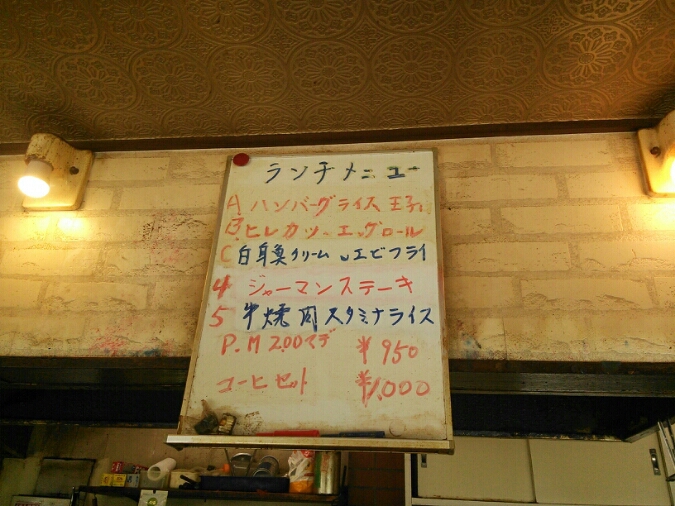 ランチメニュー
A ハンバーグライス 玉子
B ヒレカツ、エッグロール
C 白身魚クリーム、エビフライ
4 ジャーマンステーキ
5 牛焼肉スタミナライス
P.M 2.00マデ ¥950
コーヒセット ¥1,000